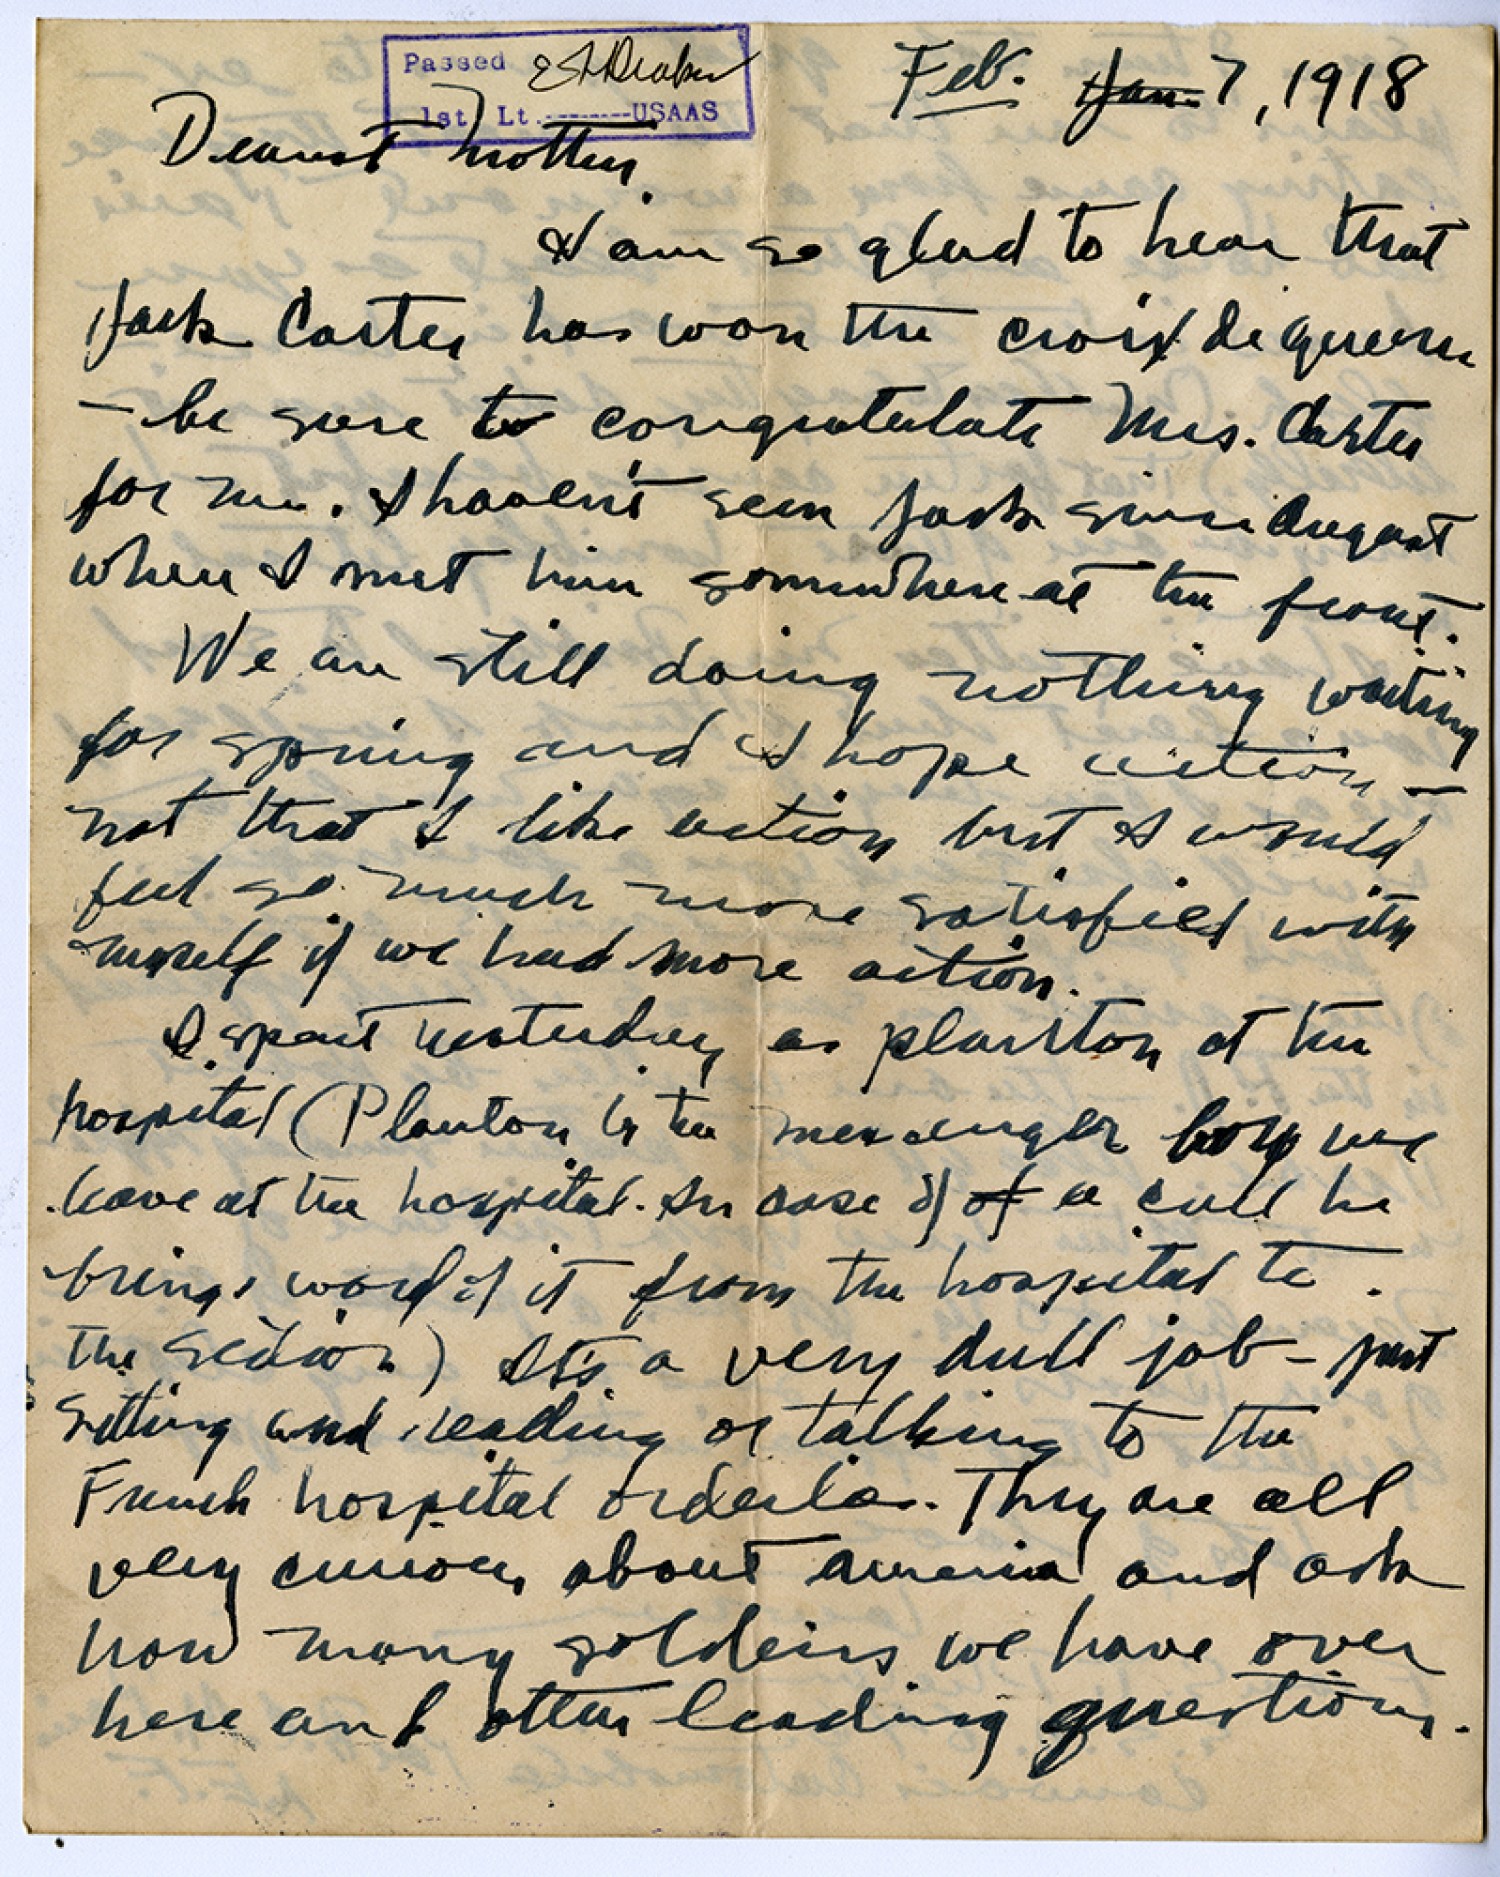 Passed
1st Lt. -------USAAS
Feb. Jan. 7, 1918
Dearest Mother,
I am so glad to hear that
Jack Carter has won the croix de guerre
- be sure to congratulate Mrs. Carter
for me. I haven't seen Jack since August
when I met him somewhere at the front.
We are still doing nothing waiting
for spring and I hope action -
not that I like action but I would
feel so much more satisfied with
myself if we had more action.
I spent yesterday as planton at the
hospital (Planton is the messenger boy we
leave at the hospital. In case of of a call he
brings word of it from the hospital to
the section) It's a very dull job - just
sitting and reading or talking to the
French hospital orderlies. They are all
very curious about America and ask
how many soldeirs we have over
here and other leading questions.